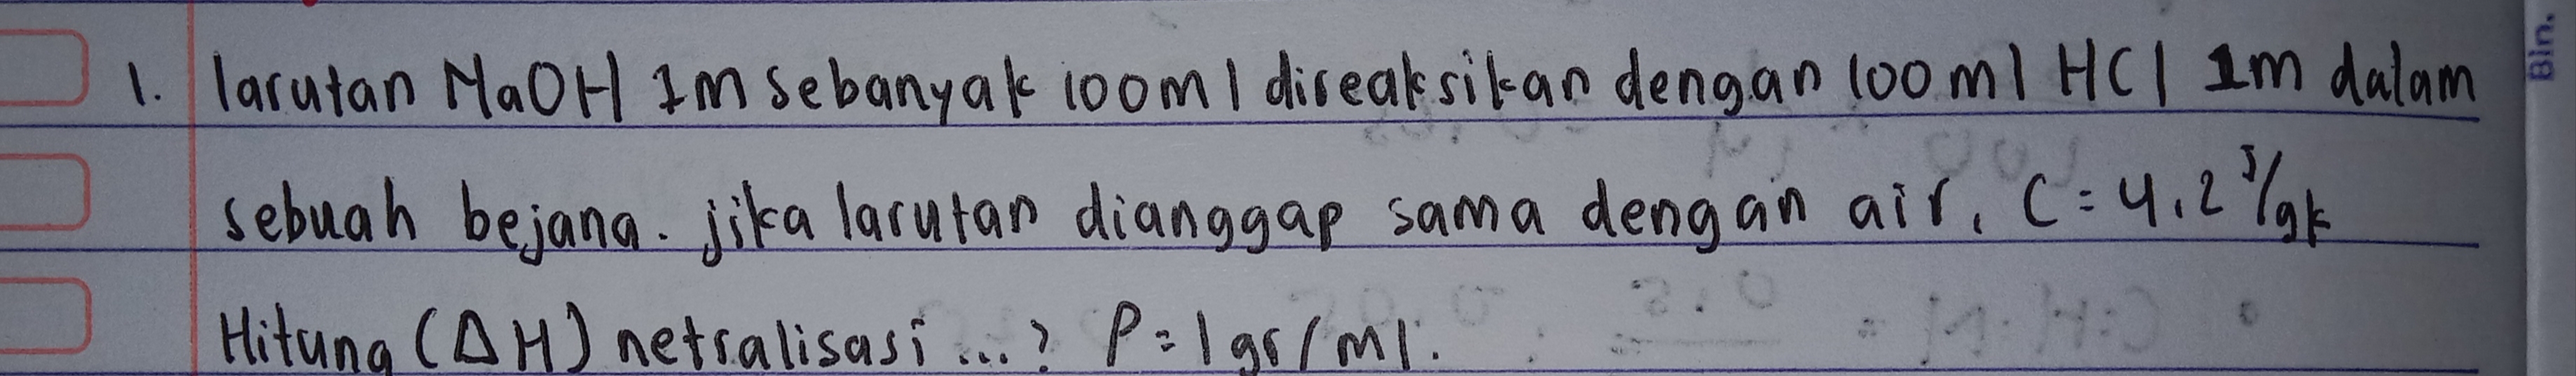 1. larutan NaOH 1m sebanyak 100ml direaksikan dengan 100 ml HCl 1m dalam
sebuah bejana. jika larutan dianggap sama dengan air, C = 4,2 J/gk
Hitung (ΔH) netralisasi ...? ρ = 1 gr/ml.
Bln.